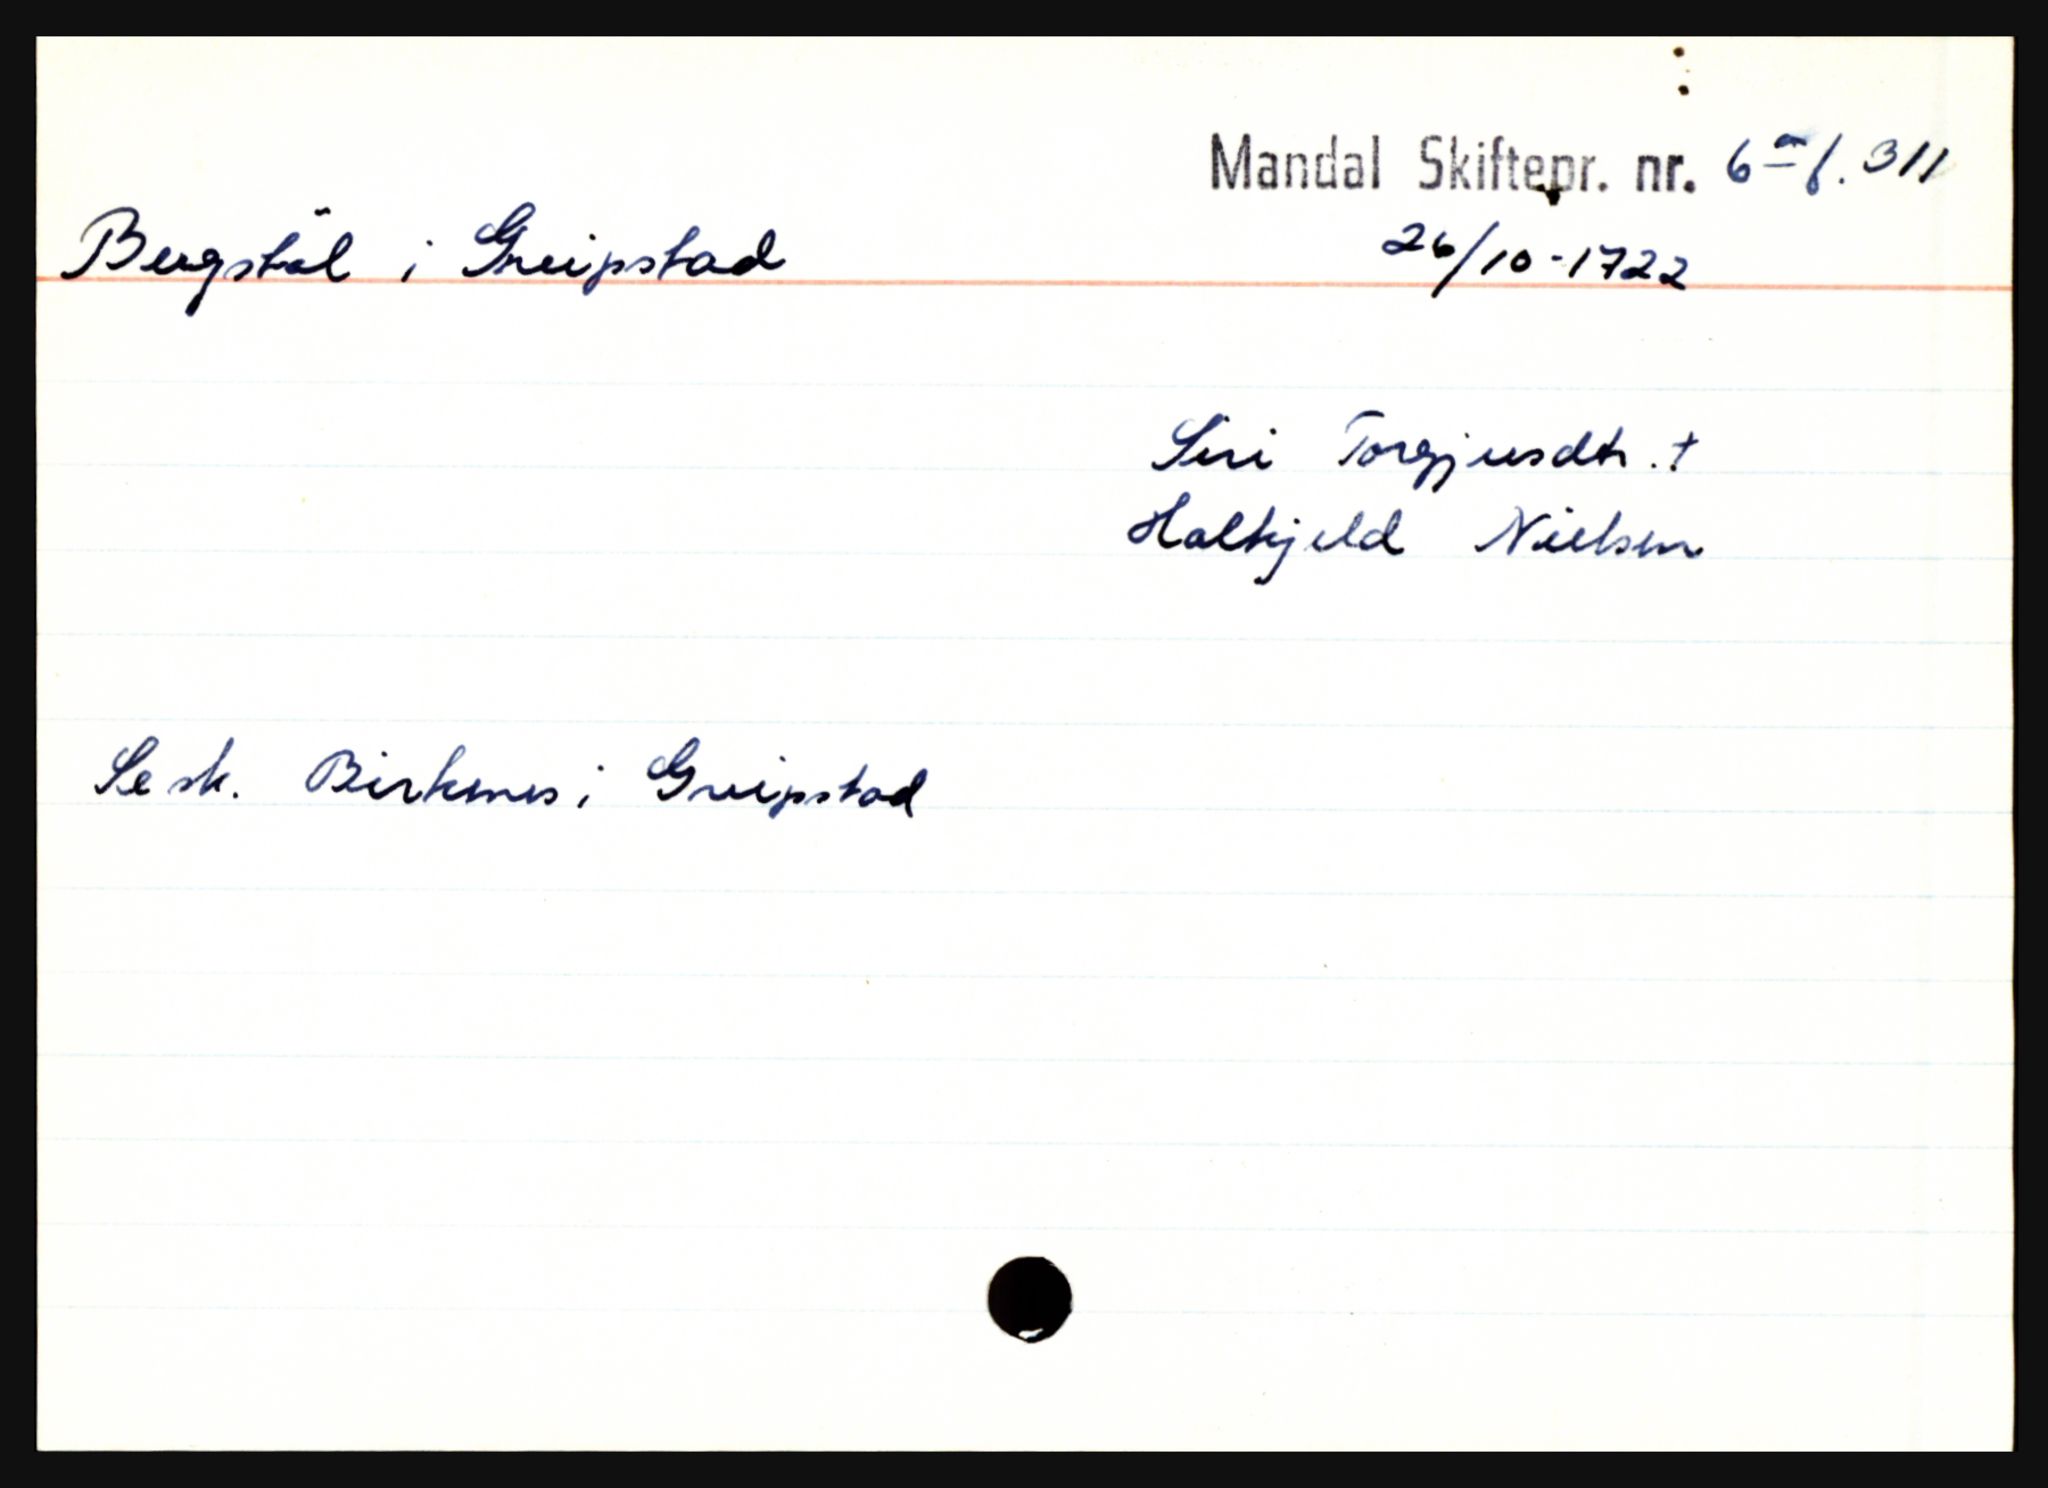 Mandal Skiftepr. nr. 6 a f. 311
Bergstøl i Greipstad 26/10-1722
Siri Torgjusdtr. †
Halkjeld Nielsen
Se sk. Birkenes i Greipstad